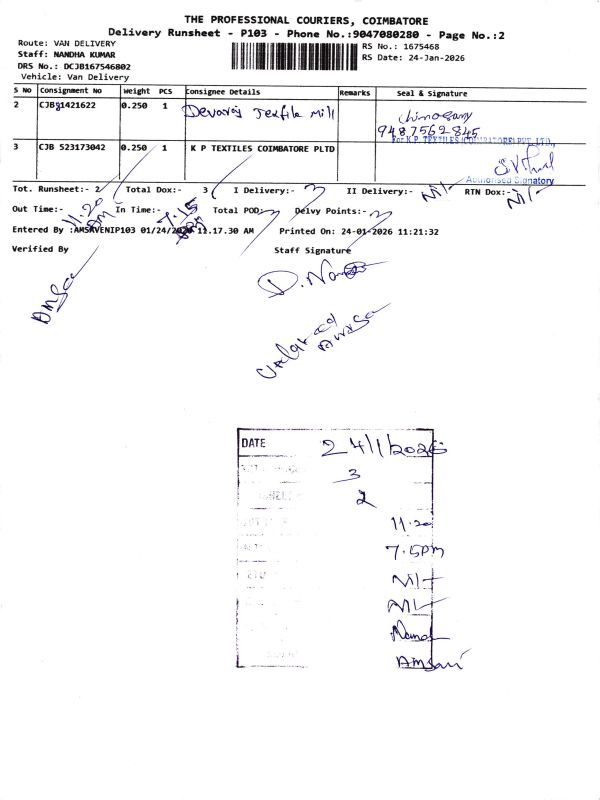 THE PROFESSIONAL COURIERS, COIMBATORE
Delivery Runsheet - P103 - Phone No.:9047080280 - Page No.:2
Route: VAN DELIVERY
Staff: NANDHA KUMAR
DRS No.: DCJB167546802
Vehicle: Van Delivery
RS No.: 1675468
RS Date: 24-Jan-2026
S No Consignment No Weight PCS Consignee Details Remarks Seal & Signature
2 CJB81421622 0.250 1 Devaraj Textile Mill
9487562845
For K.P. TEXTILES (COIMBATORE) PVT. LTD.,
3 CJB 523173042 0.250 1 K P TEXTILES COIMBATORE PLTD
Authorised Signatory
Tot. Runsheet:- 2 Total Dox:- 3 I Delivery:- 3 II Delivery:- Nil RTN Dox:- Nil
Out Time:- 11.20 AM In Time:- 7.15 PM Total POD:- 3 Delvy Points:- 3
Entered By :AMSAVENIP103 01/24/2026 11.17.30 AM Printed On: 24-01-2026 11:21:32
Verified By Staff Signature
D. Nan
DATE 24/1/2026
3
2
11.20
7.5pm
Nil
Nil
Nand
Amsavi